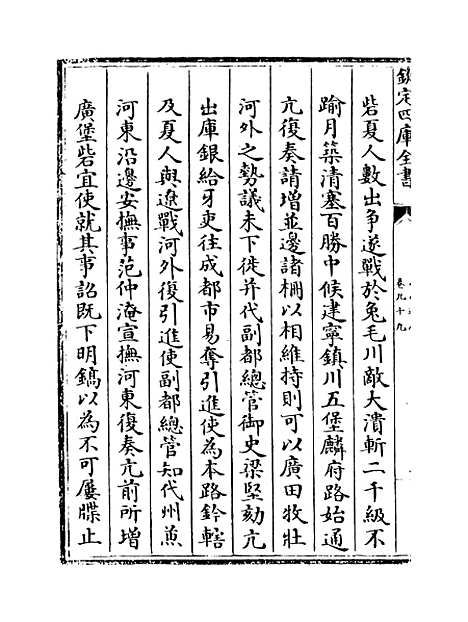 欽定四庫全書
卷九十九
砦夏人數出争遂戰於兔毛川敵大潰斬二千級不
踰月築清塞百勝中候建寧鎮川五堡麟府路始通
亢復奏請增並邊諸柵以相維持則可以廣田牧壯
河外之勢議未下徙并代副都總管御史梁堅劾亢
出庫銀給牙吏往成都市易奪引進使為本路鈐轄
及夏人與遼戰河外復引進使副都總管知代州兼
河東沿邊安撫事范仲淹宣撫河東復奏亢前所增
廣堡砦宜使就其事詔既下明鎬以為不可屢牒止